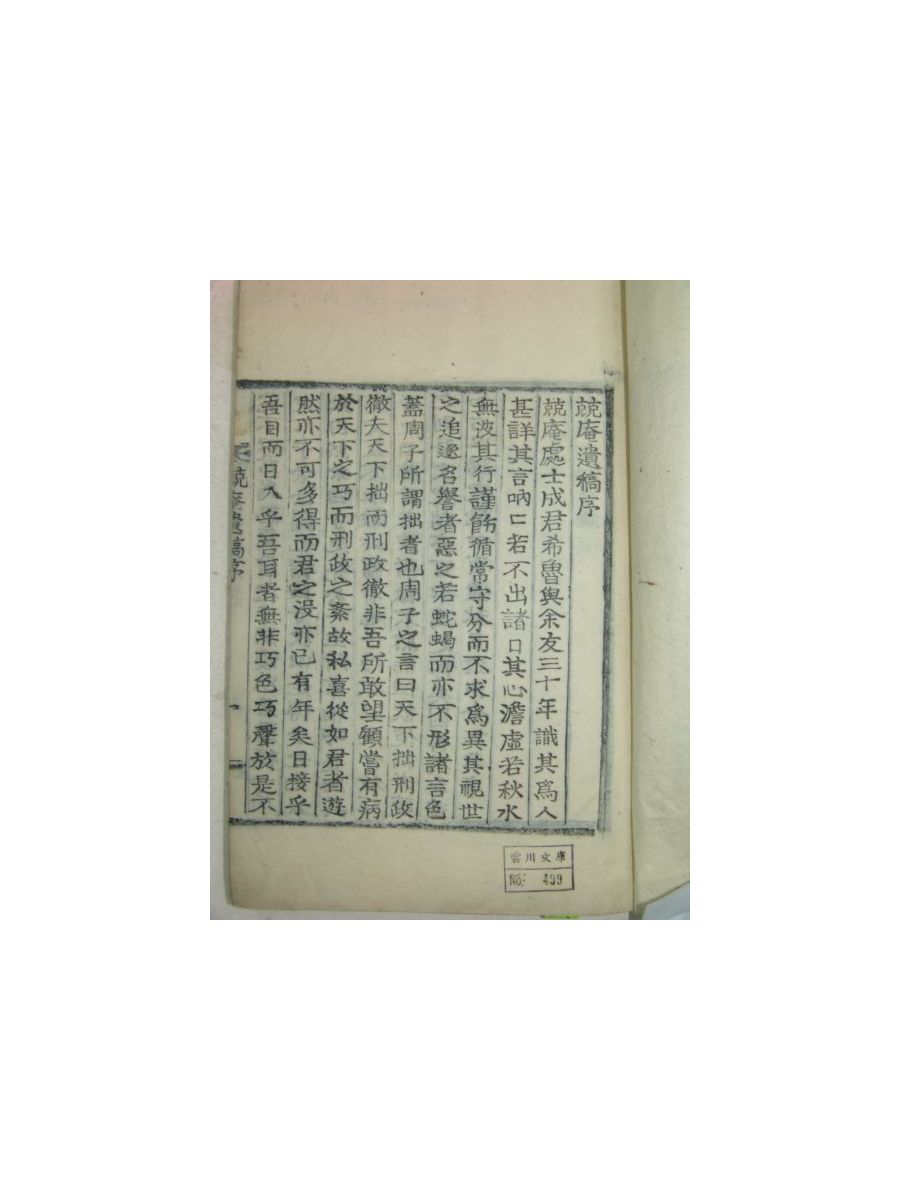 兢庵遺稿序
兢庵處士成君希魯與余友三十年識其爲人
甚詳其言吶口若不出諸口其心澹虛若秋水
無波其行謹飭循常守分而不求爲異其視世
之追逐名譽者惡之若蛇蝎而亦不形諸言色
蓋周子所謂拙者也周子之言曰天下拙刑政
徹夫天下拙而刑政徹非吾所敢望顧嘗有病
於天下之巧而刑政之紊故私喜從如君者遊
然亦不可多得而君之沒亦已有年矣日接乎
吾目而日入乎吾耳者無非巧色巧聲於是不
兢庵遺稿序
一
雲川文庫
No. 499